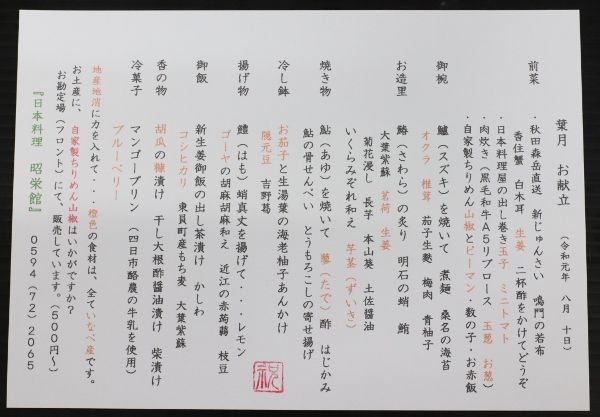 葉月　お献立
（令和元年　八月　十日）
前菜
・秋田森岳直送　新じゅんさい　鳴門の若布
香住蟹　白木耳　生姜　二杯酢をかけてどうぞ
・日本料理屋の出し巻き玉子　ミニトマト
・肉炊き（黒毛和牛A5リブロース　玉葱　お葱）
・自家製ちりめん山椒とピーマン・数の子・お赤飯
御椀
鱸（スズキ）を焼いて　煮麺　桑名の海苔
オクラ　椎茸　茄子生麩　梅肉　青柚子
お造里
鰆（さわら）の炙り　明石の蛸　鮪
大葉紫蘇　茗荷　生姜
菊花浸し　長芋　本山葵　土佐醤油
いくらみぞれ和え　芋茎（ずいき）
焼き物
鮎（あゆ）を焼いて　蓼（たで）酢　はじかみ
鮎の骨せんべい　とうもろこしの寄せ揚げ
冷し鉢
お茄子と生湯葉の海老柚子あんかけ
隠元豆　吉野葛
揚げ物
鱧（はも）蛸真丈を揚げて・・・レモン
ゴーヤの胡麻胡麻和え　近江の赤蒟蒻　枝豆
御飯
新生姜御飯の出し茶漬け　かしわ
コシヒカリ　東員町産もち麦　大葉紫蘇
香の物
胡瓜の糠漬け　干し大根酢醤油漬け　柴漬け
冷菓子
マンゴープリン　（四日市酪農の牛乳を使用）
ブルーベリー
地産地消に力を入れて・・・橙色の食材は、全ていなべ産です。
お土産に、自家製ちりめん山椒はいかがですか？
お勘定場（フロント）にて、販売しています。（５００円～）
『日本料理　昭栄館』　０５９４（７２）２０６５